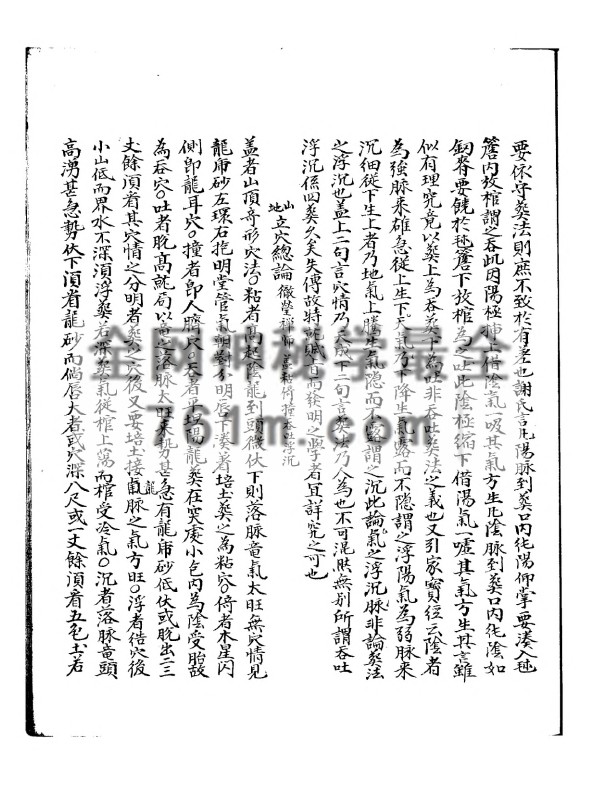 要依守葬法則庶不致於有差也謝氏言凡陽脈到葬口內純陽仰掌要湊入毬
簷內放棺謂之吞此因陽極插上借陰氣一吸其氣方生凡陰脈到葬口內純陰如
劍脊要饒於毬簷下放棺為之吐此陰極縮下借陽氣一噓其氣方生其言雖
似有理究竟以葬上為吞葬下為吐非吞吐葬法之義也又引家寶經云陰者
為強脈來雄急從上生下天氣乃下降生氣露而不隱謂之浮陽氣為弱脈來
沉細從下生上者乃地氣上騰生氣隱而不露謂之沉此論氣之浮沉脈非論葬法
之浮沉也蓋上二句言穴情乃天成下二句言葬法乃人為也不可混㸃無別所謂吞吐
浮沉係四葬久矣失傳故特 賦 而發明之學者宜詳究之可也
山地立穴總論 徵瑩禪師 蓋粘倚撞吞吐浮沉
蓋者山頂奇形穴法○粘者高起陰龍到頭微伏下則落脈竜氣太旺無穴情見
龍虎砂左環右抱明堂管氣朝對分明唇下湊着培土葬之為粘穴○倚者木星閃
側即龍耳穴○撞者即人臍穴○吞者平坦陽龍葬在窩突小包內為陰受胎故
為吞穴○吐者脫高就局以高之落脈太旺來势甚急有龍虎砂低伏或脫出二三
丈餘須看其穴情之分明者葬之穴後又要培土接龍脈之氣方旺○浮者结穴後
小山低而界水不深須浮葬若深葬氣從棺上蕩而棺受冷氣○沉者落脈竜頭
高湧甚急勢伏下須看龍砂而倘唇大者或穴深八尺或一丈餘須看五色土若
全网 秘学最全
761m.com